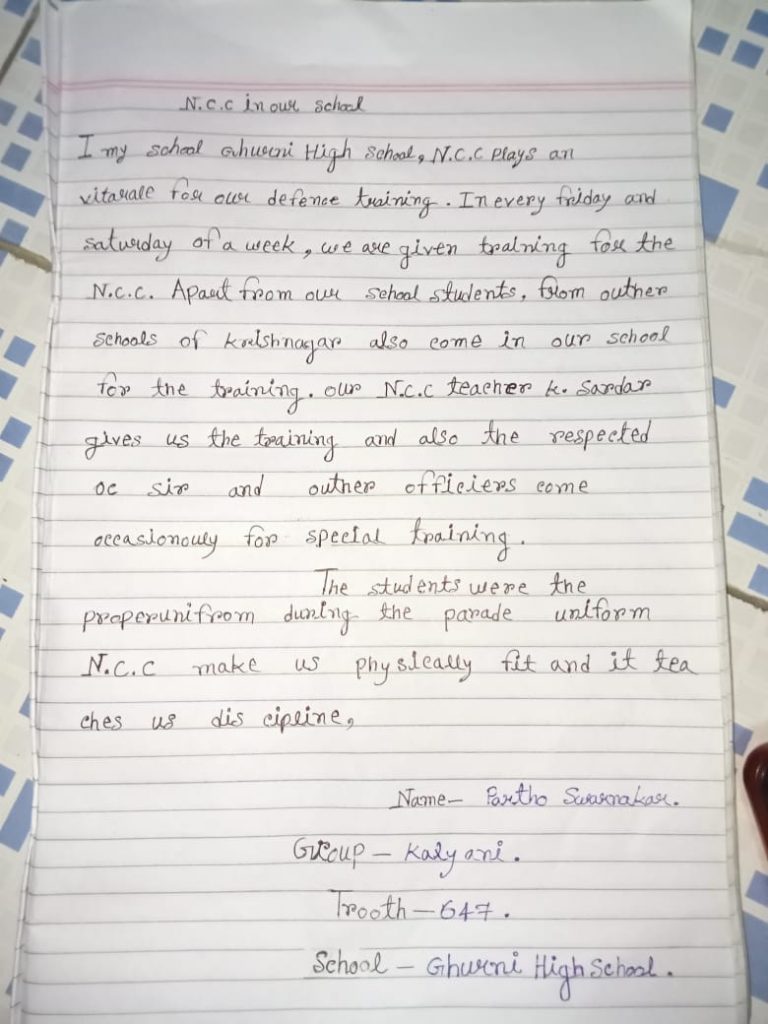 N.C.C in our school
I my school Ghurni High School, N.C.C Plays an
vitarale for our defence training. In every friday and
saturday of a week, we are given tralning for the
N.C.C. Apart from our school students, from outher
schools of Krishnagar also come in our school
for the training. our N.C.C teacher k. Sardar
gives us the training and also the respected
oc sir and outher officiers come
occasionouly for special training.
The students were the
properunifrom during the parade uniform
N.C.C make us physically fit and it tea
ches us dis cipline,
Name - Partho Swarnakar.
Group - Kalyani.
Trooth - 647.
School - Ghurni High School.